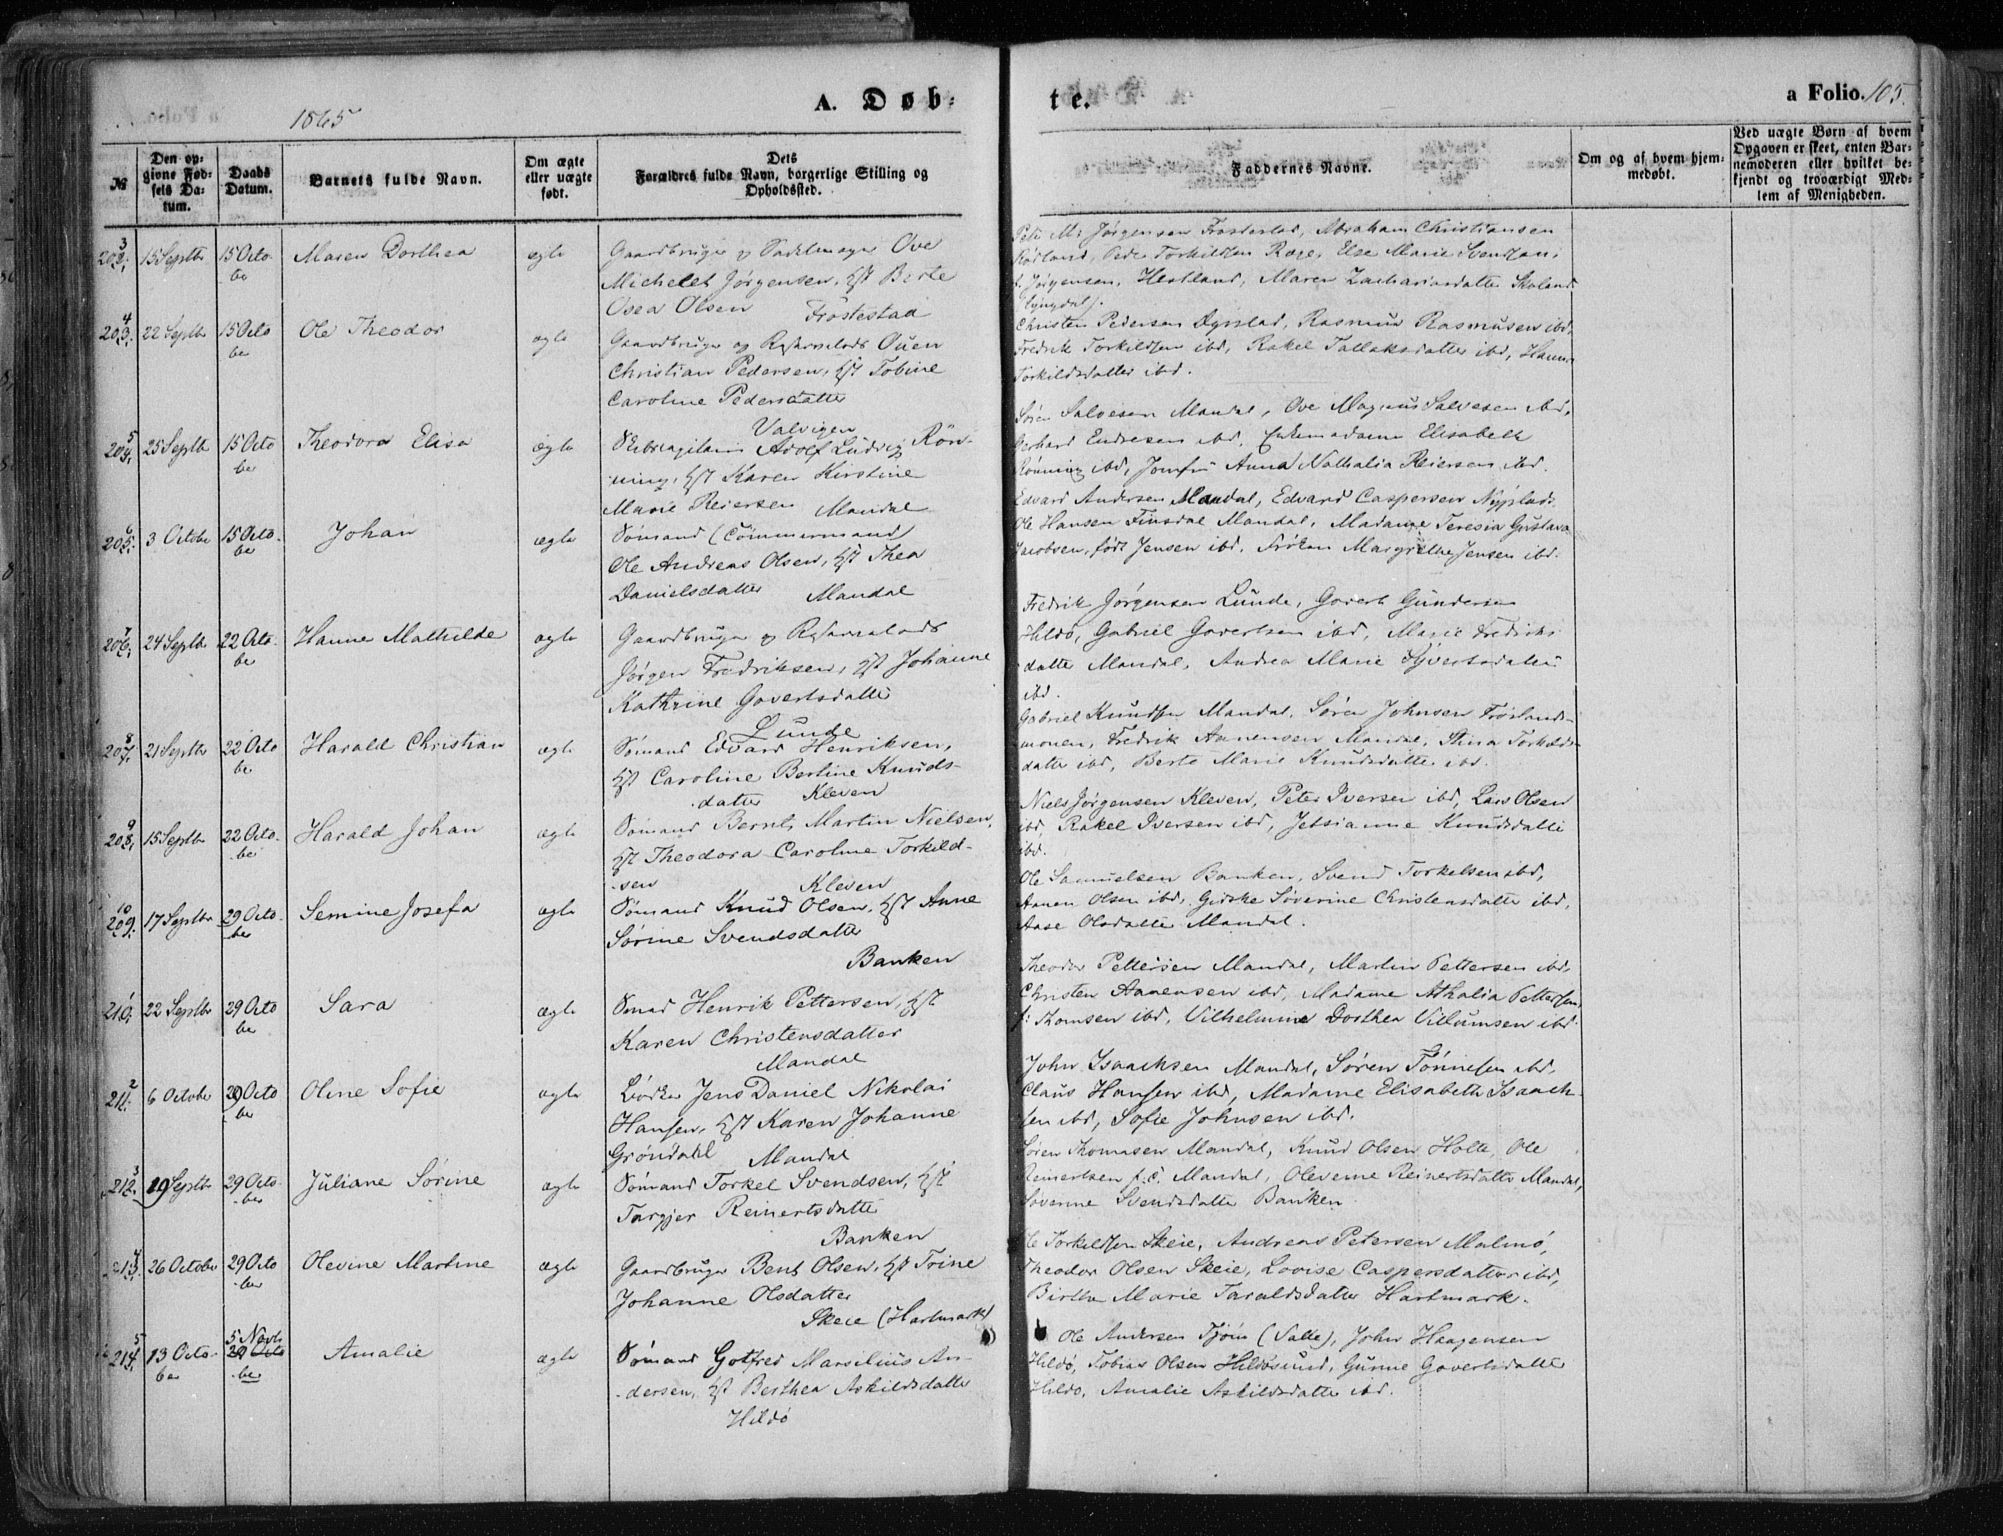 1865
A. Døb-
te.
a Folio. 105.
№
Den opgivne Fødsels Datum.
Daabs Datum.
Barnets fulde Navn.
Om ægte eller uægte født.
Dets Forældres fulde Navn, borgerlige Stilling og Opholdssted.
Faddernes Navne.
Om og af hvem hjemmedøbt.
Ved uægte Børn af hvem Opgaven er skeet, enten Barnemoderen eller hvilket bekjendt og troværdigt Medlem af Menigheden.
203 15 Septbr 15 Octobe Maren Dorthea ægte Gaardbruger & Sadelmager Ove
Michelet Jørgensen, Hst Birte
Osea Olsen Frøstestad
Jørgensen Frøstestad, Abraham Christiansen
Peder Torkildsen Røge, Else Marie
Jørgensen, Hestland, Maren Zachariasdatter
Lyngdal.
204 22 Septbr 15 Octobe Ole Theodor ægte Gaardbruger og Ouen
Christian Pedersen, Hst Tobine
Caroline Pedersdatter
Valvigen
Christen Pedersen Dyrstad, Rasmus Rasmusen ibd,
Fredrik Torkildsen ibd, Rakel Tallaksdatter ibd, Hanne
Torkildsdatter ibd.
205 25 Septbr 15 Octobe Theodora Elisa ægte Skibscapitain Adolf Ludvig Røn-
ning, Hst Karen Kirstine
Marie Reiersen Mandal
Søren Salvesen Mandal, Ove Magnus Salvesen ibd,
Gerhard Endresen ibd, Enkemadame Elisabeth
Rønning ibd, Jomfru Anna Nathalia Reiersen ibd.
206 3 Octobe 15 Octobe Johan ægte Sømand (Tømmermand)
Ole Andreas Olsen, Hst Thea
Danielsdatter Mandal
Edvard Andersen Mandal, Edvard Caspersen
Ole Hansen Finsdal Mandal, Madame Teresia Gustava
Jacobsen, født Jensen ibd, Frøken Margrethe Jensen ibd.
207 24 Septbr 22 Octobe Hanne Mathilde ægte Gaardbruger &
Jørgen Fredriksen, Hst Johanne
Kathrine Govertsdatter
Lunde
Fredrik Jørgensen Lunde, Govert Gundersen
Hildø, Gabriel Govertsen ibd, Marie Fredriks-
datter Mandal, Andrea Marie Syvertsdatter
ibd.
208 21 Septbr 22 Octobe Harald Christian ægte Sømand Edvard Henriksen,
Hst Caroline Bertine Knuds-
datter Kleven
Gabriel Knudsen Mandal, Søren Johnsen Frøslands-
monen, Fredrik Aanensen Mandal, Stina Torkelds-
datter ibd, Berte Marie Knudsdatter ibd.
209 15 Septbr 22 Octobe Harald Johan ægte Sømand Bernt Martin Nielsen,
Hst Theodora Caroline Torkild-
sen Kleven
Niels Jørgensen Kleven, Peter Iversen ibd, Lars Olsen
ibd, Rakel Iversen ibd, Jetsianne Knudsdatter
ibd.
210 17 Septbr 29 Octobe Semine Josefa ægte Sømand Knud Olsen, Hst Anne
Sørine Svendsdatter
Banken
Ole Samuelsen Banken, Svend Torkelsen ibd,
Aanen Olsen ibd, Gidske Severine Christensdatter ibd,
Aase Olsdatter Mandal.
211 22 Septbr 29 Octobe Sara ægte Sømand Henrik Pettersen, Hst
Karen Christensdatter
Mandal
Theodor Pettersen Mandal, Martin Pettersen ibd,
Christen Aanensen ibd, Madame Athalia Pettersen,
f: Thomsen ibd, Vilhelmine Dorthea Villumsen ibd.
212 6 October 29 Octobe Oline Sofie ægte Bødker Jens Daniel Nikolai
Hansen, Hst Karen Johanne
Grøndahl Mandal
John Isaachsen Mandal, Søren Tønnesen ibd,
Claus Hansen ibd, Madame Elisabeth Isaach-
sen ibd, Sofie Johnsen ibd.
213 19 Septbr 29 Octobe Juliane Sørine ægte Sømand Torkel Svendsen, Hst
Targjer Reinertsdatter
Banken
Søren Thomasen Mandal, Knud Olsen Holte, Ole
Reinertsen Mandal, Oleverne Reinertsdatter Mandal,
Severine Svendsdatter Banken
214 26 October 29 Octobe Olevine Martine ægte Gaardbruger Bent Olsen, Hst Trine
Johanne Olsdatter
Skeie (Hartmark)
Ole Torkildsen Skeie, Andreas Petersen Malmø,
Theodor Olsen Skeie, Lovise Caspersdatter ibd,
Birthe Marie Taraldsdatter Hartmark.
215 13 Octobe 5 Novb Amalie ægte Sømand Gotfred Marselius An-
dersen, Hst Berthea Askildsdatter
Hildø
Ole Andersen Tjøm (Valle), John Haagensen
Hildø, Tobias Olsen Hildøsund, Gunne Govertsdatter
Hildø, Amalie Askildsdatter ibd.